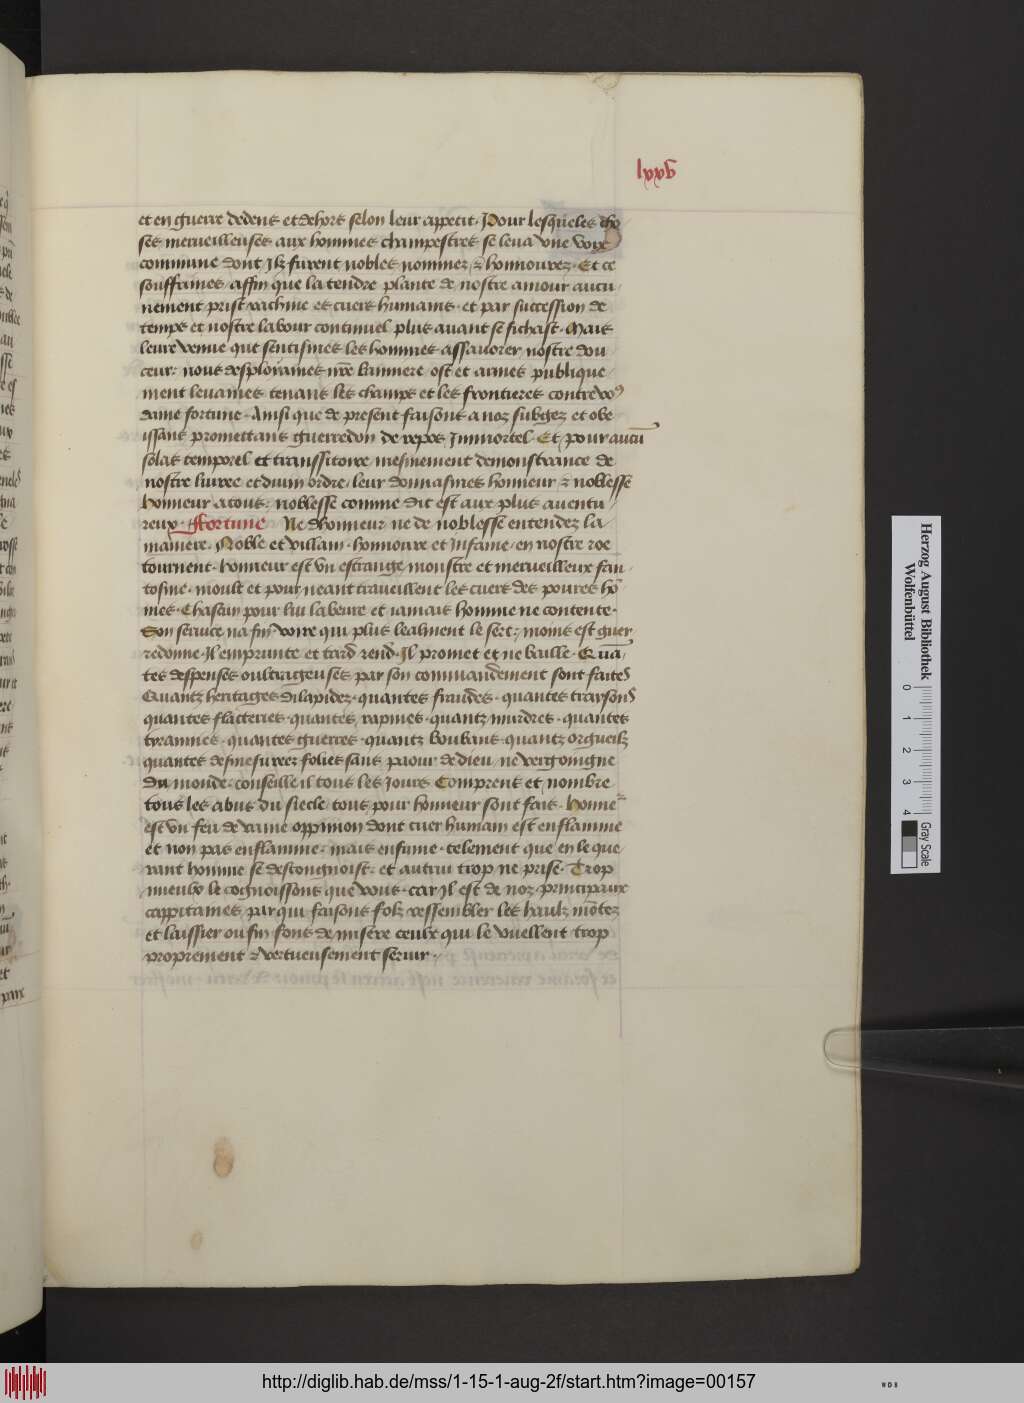 lxxv
et en guerre dedens et dehors selon leur appetit. Pour lesqueles cho
ses merveilleuses aux hommes champestres se leva une voix
commune dont Ilz furent nobles nommez & honnourez. Et ce
souffrimes affin que la tendre plante de nostre amour aucu
nement prist rachine es cuers humains. et par succession de
temps et nostre labour continuel plus avant se fichast. Mais
leure venue que sentismes les hommes assavorer nostre dou
ceur: nous desploiames nre banniere ost et armes publique
ment levames tenans les champs et les frontieres contre vo9
dame fortune. Ainsi que de present faisons a noz subgez et obe
issans promettans guerredon de repos Immortel. Et pour aucu
solas temporel et transsitoire mesmement demonstrance de
nostre livree et dun ordre leur donnasmes honneur & noblesse
honneur a tous: noblesse comme dit est aux plus aventu
reux. Ffortune Ne dhonneur ne de noblesse entendez la
maniere. Noble et villain. honnoure et Infame. en nostre roe
tournent. honneur est un estrange monstre et merveilleux fan
tosme. moult et pour neant traveillent les cuers des poures ho
mes. Chascun pour lui labeure et iamais homme ne contente.
Son service na fin. voire qui plus lealment le sert: moins est guer
redonne. Il emprunte et tard rend. Il promet et ne baille. Qua
tes despenses oultrageuses par son commandement sont faites
Quantz heritages dilapidez. quantes fraudes. quantes traysons
quantes flacteries. quantes rapines. quantz murdres. quantes
tyrannies. quantes guerres. quantz boubans. quantz orgueilz
quantes desmesurees folies sans paour de dieu ne vergoingne
Du monde. conseille il tous les Jours. Comprens et nombre
tous les abus du siecle. tous pour honneur sont fais. honne
est un feu de vaine oppinion dont cuer humain est enflamme
et non pas enflamme: mais enfume. telement que en le que
rant homme se descongnoist. et autrui trop ne prise. Trop
mieulx le cognoissons que vous. car Il est de noz principaux
cappitaines par qui faisons folz ressembler les haulz motez
et laissier ou fin fons de misere ceulx qui le vuellent trop
proprement & vertueusement servir.
Herzog August Bibliothek
Wolfenbüttel
0 1 2 3 4
Gray Scale
http://diglib.hab.de/mss/1-15-1-aug-2f/start.htm?image=00157
WDB